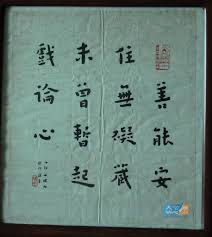 善能安
住無礙藏
未曾暫起
戲論心